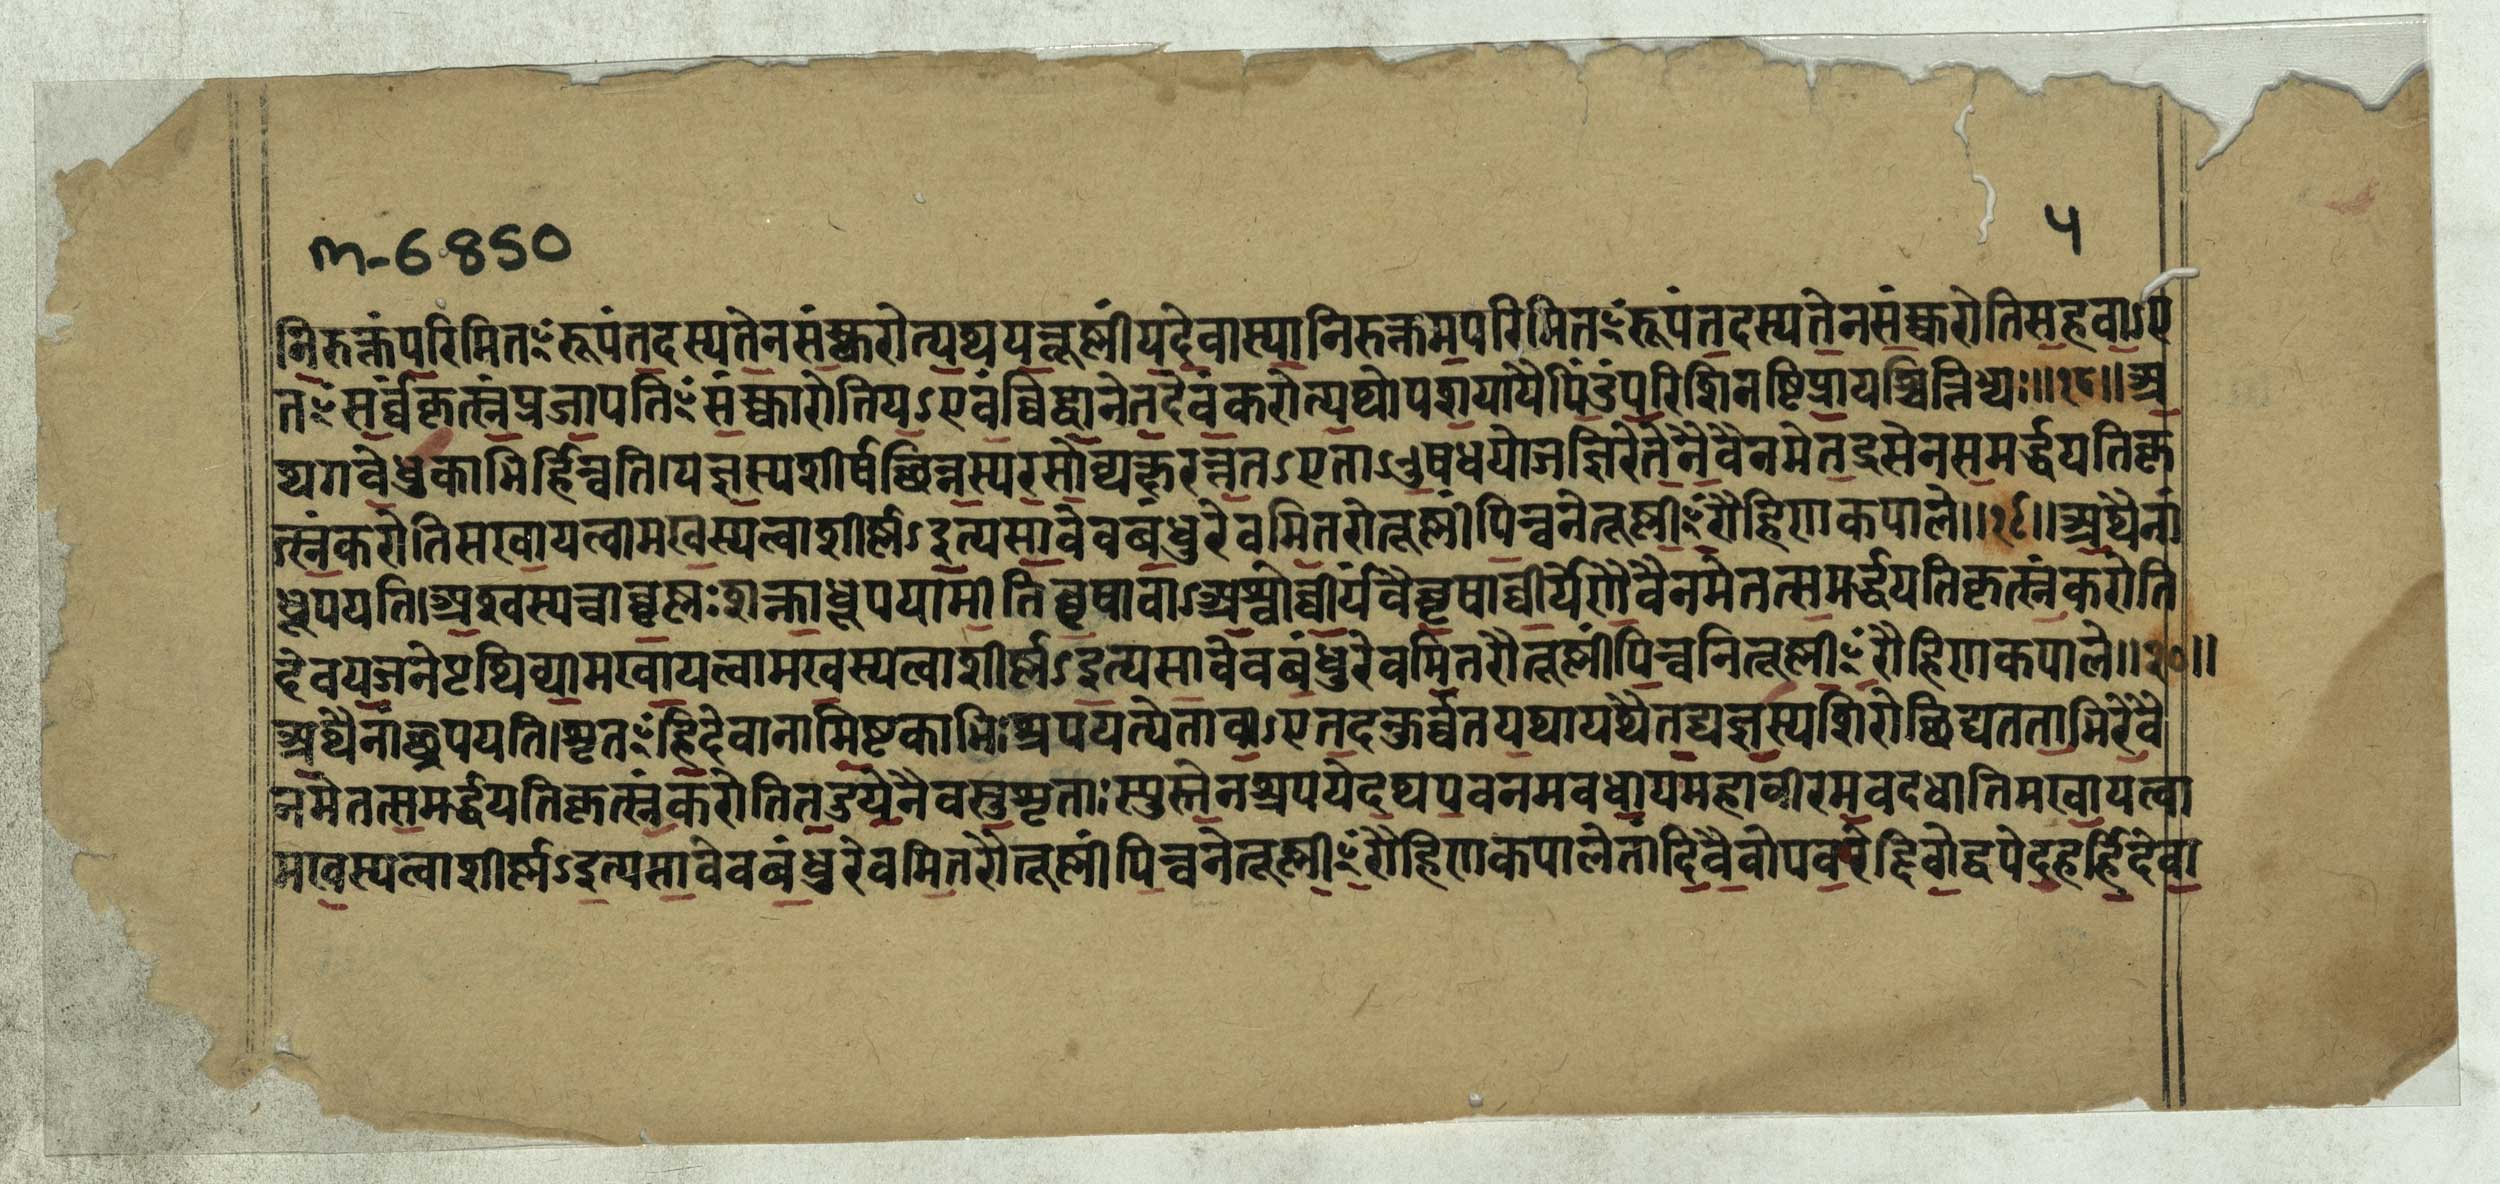 m-6850
५
निरुक्तंपरिमितꣳरूपंतदस्यतेनसंस्करोत्यथयत्तूष्णींयदेवास्यानिरुक्तमपरिमितꣳरूपंतदस्यतेनसंस्करोतिसहवाऽए
तꣳसर्व्वंकृत्स्नंप्रजापतिꣳसंस्कारोतियऽएवंव्विद्वानेतदेवंकरोत्यथोपशयायैपिंडंपरिशिनष्टिप्रायश्चित्तिभ्यः॥१८॥अ
थगवेधुकाभिर्हिन्वति।यज्ञस्यशीर्षच्छिन्नस्यरसोव्यक्षरत्ततऽएताऽओषधयोजज्ञिरेतेनैवैनमेतद्रसेनसमर्द्धयतिकृ
त्स्नंकरोतिमखायत्वामखस्यत्वाशीर्ष्णऽइत्यसावेवबंधुरेवमितरोतूष्णींपिन्वनेतूष्णीꣳरौहिणकपाले॥१९॥अथैनां
धूपयति।अश्वस्यत्वाव्वृष्णःशक्नाधूपयामीतिव्वृषावाऽअश्वोव्वीर्यंवैव्वृषाव्वीर्येणैवैनमेतत्समर्द्धयतिकृत्स्नंकरोति
देवयजनेपृथिव्यामखायत्वामखस्यत्वाशीर्ष्णऽइत्यसावेवबंधुरेवमितरौतूष्णींपिन्वनितूष्णीꣳरौहिणकपाले॥२०॥
अथैनांछ्रपयति।शृतꣳहिदेवानामिष्टकाभिःश्रपयत्येतावाऽएतदकुर्व्वतयथायथैतद्यज्ञस्यशिरोच्छिद्यतताभिरेवै
नमेतत्समर्द्धयतिकृत्स्नंकरोतितद्येनैवसुशृताःस्युस्तेनश्रपयेदथपवनमवधायमहावीरमवदधातिमखायत्वा
मखस्यत्वाशीर्ष्णऽइत्यसावेवबंधुरेवमितरौतूष्णींपिन्वनेतूष्णीꣳरौहिणकपालेतांदिवैवोपवपेद्दिवोद्वपेदहर्हिदेवा